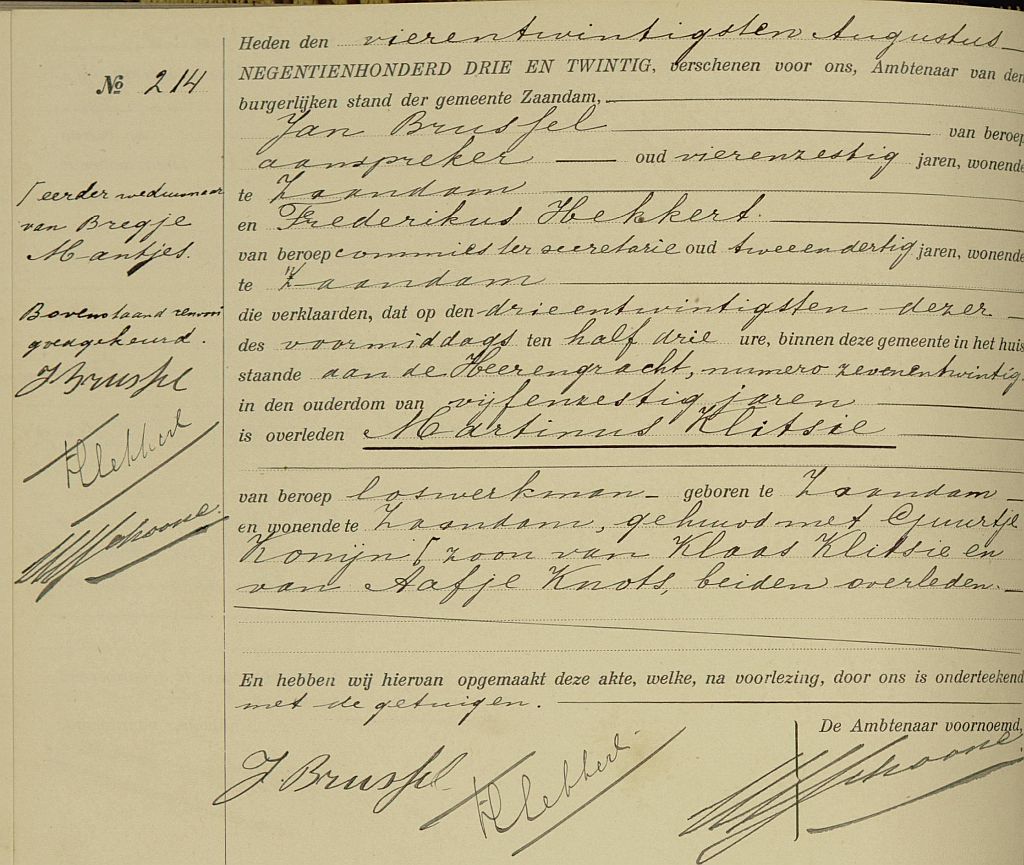 Heden den vierentwintigsten Augustus
NEGENTIENHONDERD DRIE EN TWINTIG, verschenen voor ons, Ambtenaar van den
burgerlijken stand der gemeente Zaandam,
Jan Brussel van beroep
aanspreker oud vierenzestig jaren, wonende
te Zaandam
en Frederikus Hekkert.
van beroep commies ter secretarie oud tweeendertig jaren, wonende
te Zaandam
die verklaarden, dat op den drieentwintigsten dezer
des voormiddags ten half drie ure, binnen deze gemeente in het huis
staande aan de Heerengracht, numero zevenentwintig
in den ouderdom van vijfenzestig jaren
is overleden Martinus Klitsie
van beroep loswerkman geboren te Zaandam
en wonende te Zaandam, gehuwd met Guurtje
Konijn [ zoon van Klaas Klitsie en
van Aafje Knots, beiden overleden.
En hebben wij hiervan opgemaakt deze akte, welke, na voorlezing, door ons is onderteekend
met de getuigen.
De Ambtenaar voornoemd,
J. Brussel FHekkert. Schoone
№ 214
[ eerder weduwnaar
van Bregje
Mantjes.
Bovenstaand renvooi
goedgekeurd.
J Brussel
FHekkert
Schoone.